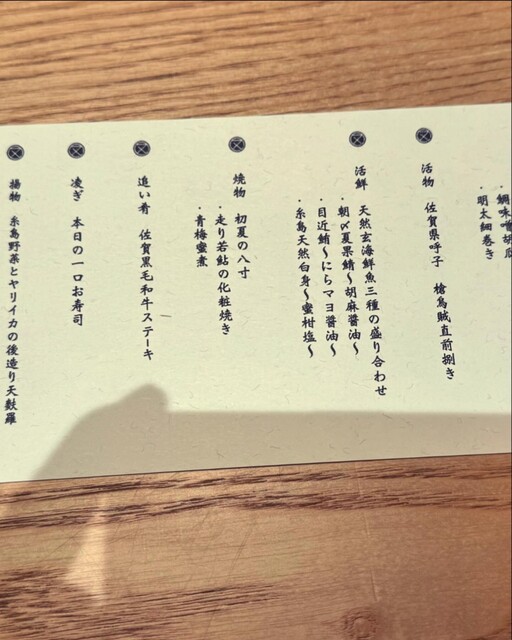 ・鯛味噌胡瓜
・明太細巻き
活物 佐賀県呼子 槍烏賊直前捌き
活鮮 天然玄海鮮魚三種の盛り合わせ
・朝〆夏果鯖〜胡麻醤油〜
・目近鮪〜にらマヨ醤油〜
・糸島天然白身〜蜜柑塩〜
焼物 初夏の八寸
・走り若鮎の化粧焼き
・青梅蜜煮
追い肴 佐賀黒毛和牛ステーキ
凌ぎ 本日の一口お寿司
揚物 糸島野菜とヤリイカの後造り天麩羅